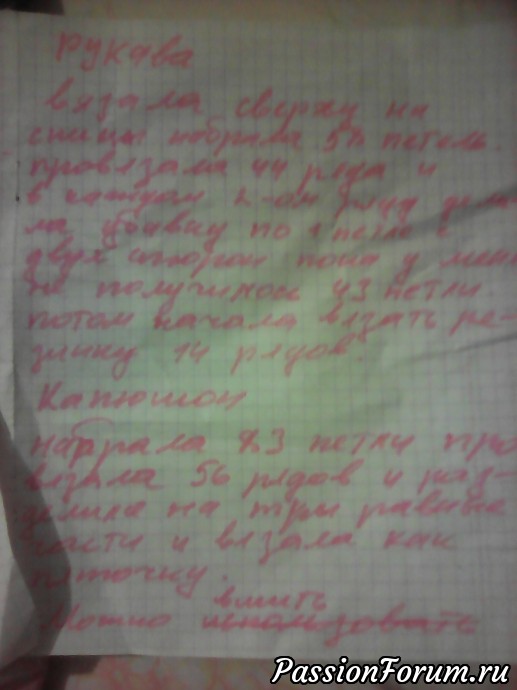 Рукава
вязала сверху на
спицы набрала петель
провязала 44 ряда и
в каждом ряду дела-
ла убавку по 1 петле с
двух сторон пока у меня
не получилось 43 петли.
потом начала вязать ре-
зинку 14 рядов.
Капюшон
набрала 83 петли про
вязала 56 рядов и раз-
делила на три равные
части и вязала как
пяточку.
вшить
Можно использовать
PassionForum.ru